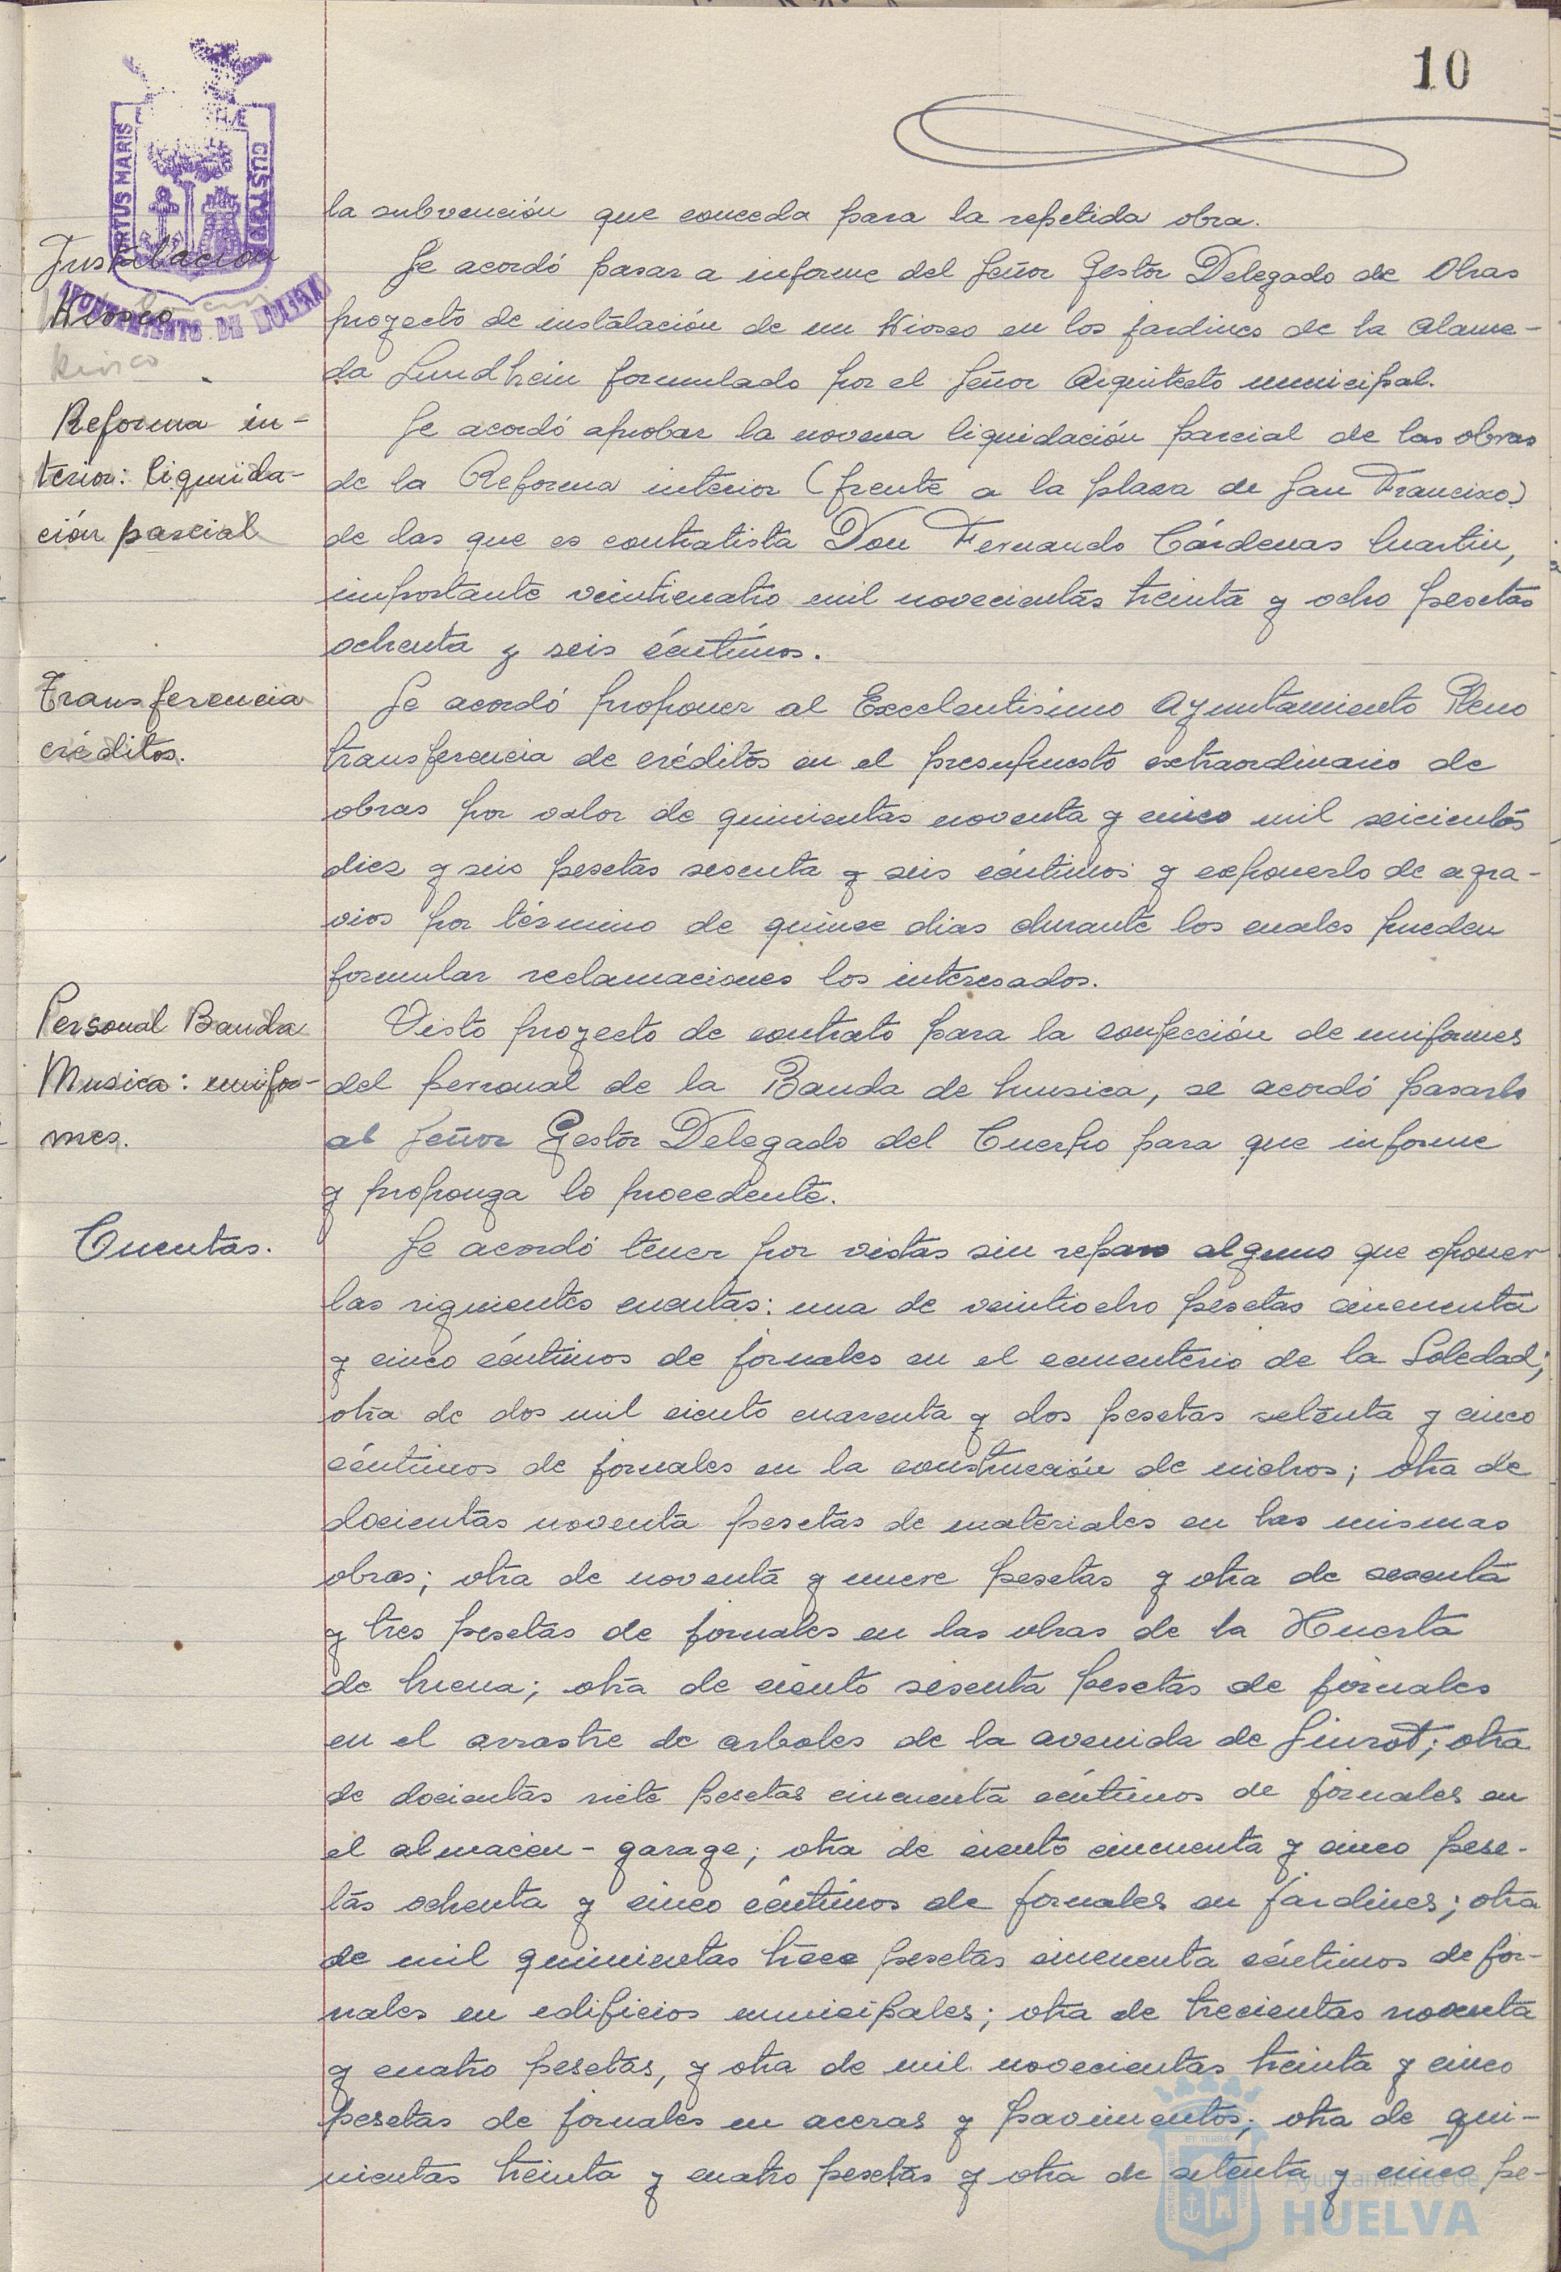 10
PORTUS MARIS
CUSTODIA
AYUNTAMIENTO DE HUELVA
la subvención que conceda para la repetida obra.
Instalacion
Kiosco
Kiosco
Se acordó pasar a informe del Señor Gestor Delegado de Obras
proyecto de instalación de un Kiosco en los jardines de la Alame-
da Sundhein formulado por el Señor Arquitecto municipal.
Reforma in-
terior: liquida-
ción parcial
Se acordó aprobar la novena liquidación parcial de las obras
de la Reforma interior (frente a la plaza de San Francisco)
de las que es contratista Don Fernando Cárdenas Martin,
importante veinticuatro mil novecientas treinta y ocho pesetas
ochenta y seis céntimos.
Transferencia
créditos.
Se acordó proponer al Excelentisimo Ayuntamiento Pleno
transferencia de créditos en el presupuesto extraordinario de
obras por valor de quinientas noventa y cinco mil seicientas
diez y seis pesetas sesenta y seis céntimos y exponerlo de agra-
vios por término de quince dias durante los cuales pueden
formular reclamaciones los interesados.
Personal Banda
Musica: unifor-
mes.
Visto proyecto de contrato para la confección de uniformes
del personal de la Banda de Musica, se acordó pasarlo
al Señor Gestor Delegado del Cuerpo para que informe
y proponga lo procedente.
Cuentas.
Se acordó tener por vistas sin reparo alguno que oponer
las siguientes cuentas: una de veintiocho pesetas cincuenta
y cinco céntimos de jornales en el cementerio de la Soledad;
otra de dos mil ciento cuarenta y dos pesetas setenta y cinco
céntimos de jornales en la construcción de nichos; otra de
docientas noventa pesetas de materiales en las mismas
obras; otra de noventa y nueve pesetas y otra de sesenta
y tres pesetas de jornales en las obras de la Huerta
de Mena; otra de ciento sesenta pesetas de jornales
en el arrastre de arboles de la avenida de Siurot; otra
de docientas siete pesetas cincuenta céntimos de jornales en
el almacen-garage; otra de ciento cincuenta y cinco pese-
tas ochenta y cinco céntimos de jornales en jardines; otra
de mil quinientas trece pesetas cincuenta céntimos de jor-
nales en edificios municipales; otra de trecientas noventa
y cuatro pesetas, y otra de mil novecientas treinta y cinco
pesetas de jornales en aceras y pavimentos; otra de qui-
nientas treinta y cuatro pesetas y otra de setenta y cinco pe-
Ayuntamiento de
HUELVA